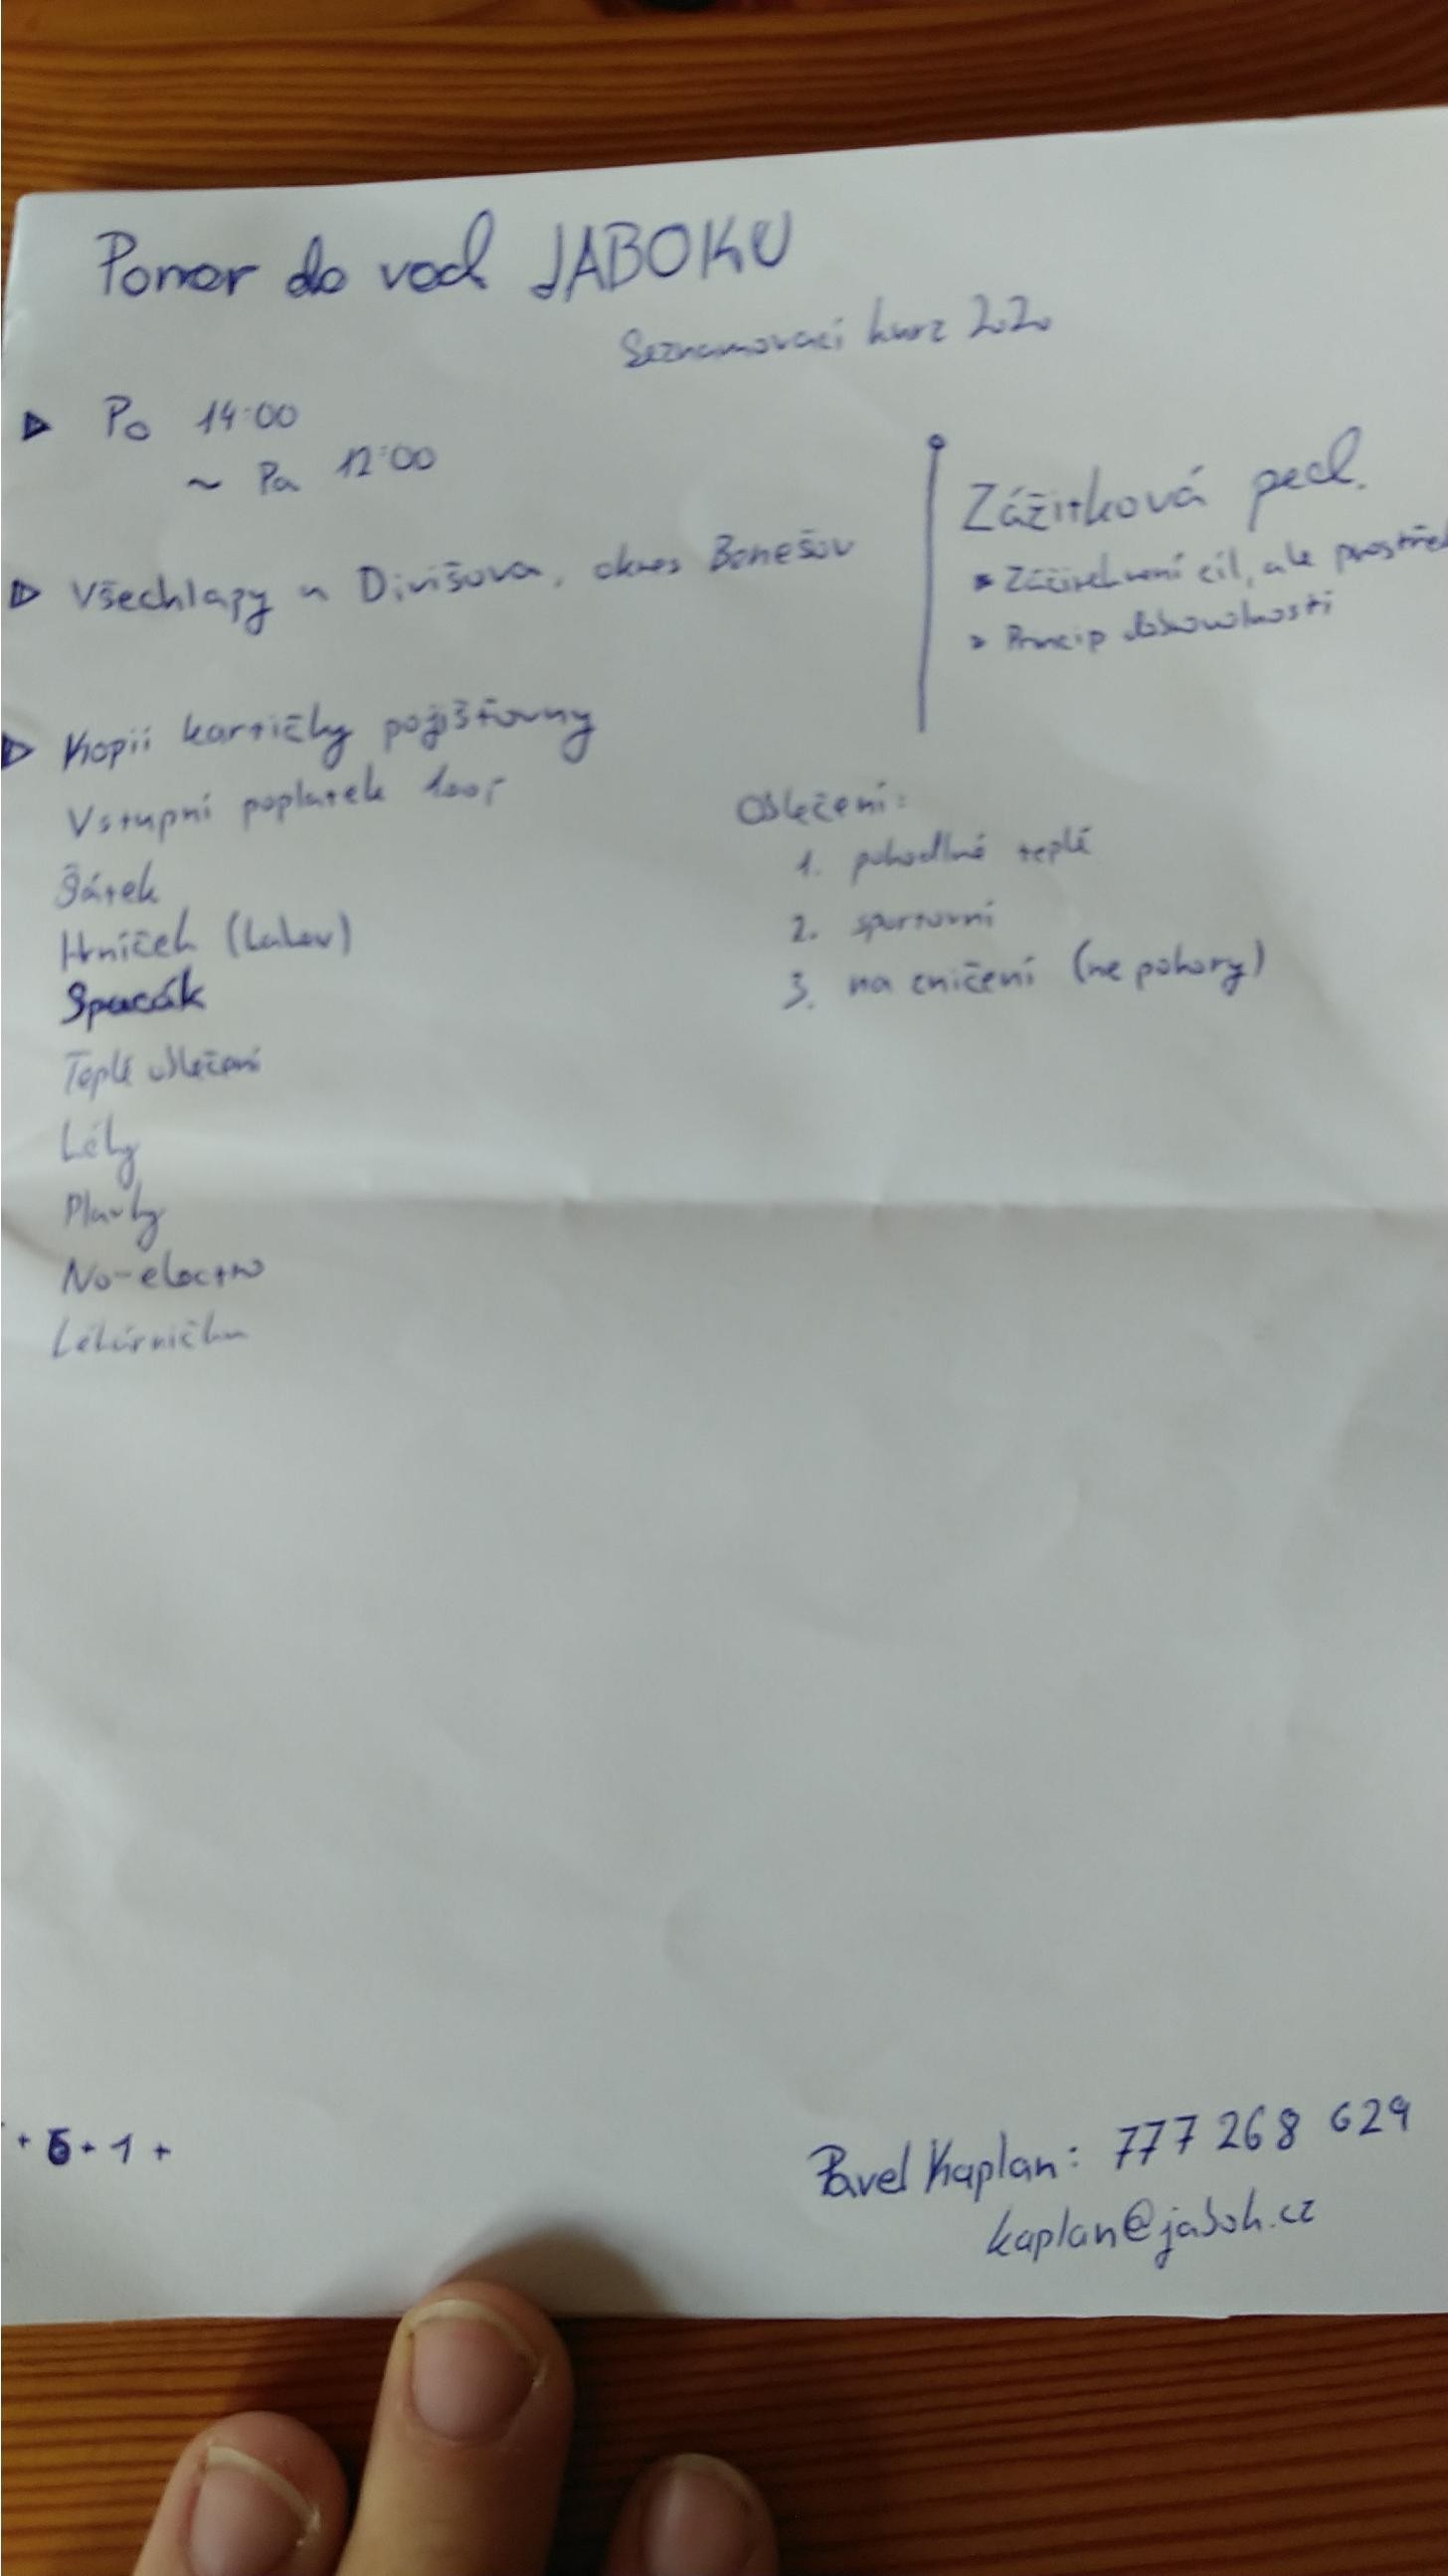 Ponor do vod JABOKU
Seznamovací kurz 2020
Po 14:00
~ Pa 12:00
Všechlapy u Divišova, okres Benešov
Zážitková ped.
Zážitek není cíl, ale prostřed
Princip dobrovolnosti
Kopii kartičky pojišťovny
Vstupní poplatek 100,-
Šátek
Hníček (Lahev)
Spacák
Teplé oblečení
Léky
Plavky
No-electro
Lékárnička
Oblečení:
1. pohodlné teplé
2. sportovní
3. na zničení (ne pohory)
+ 6 + 1 +
Pavel Kaplan: 777 268 629
kaplan@jabok.cz